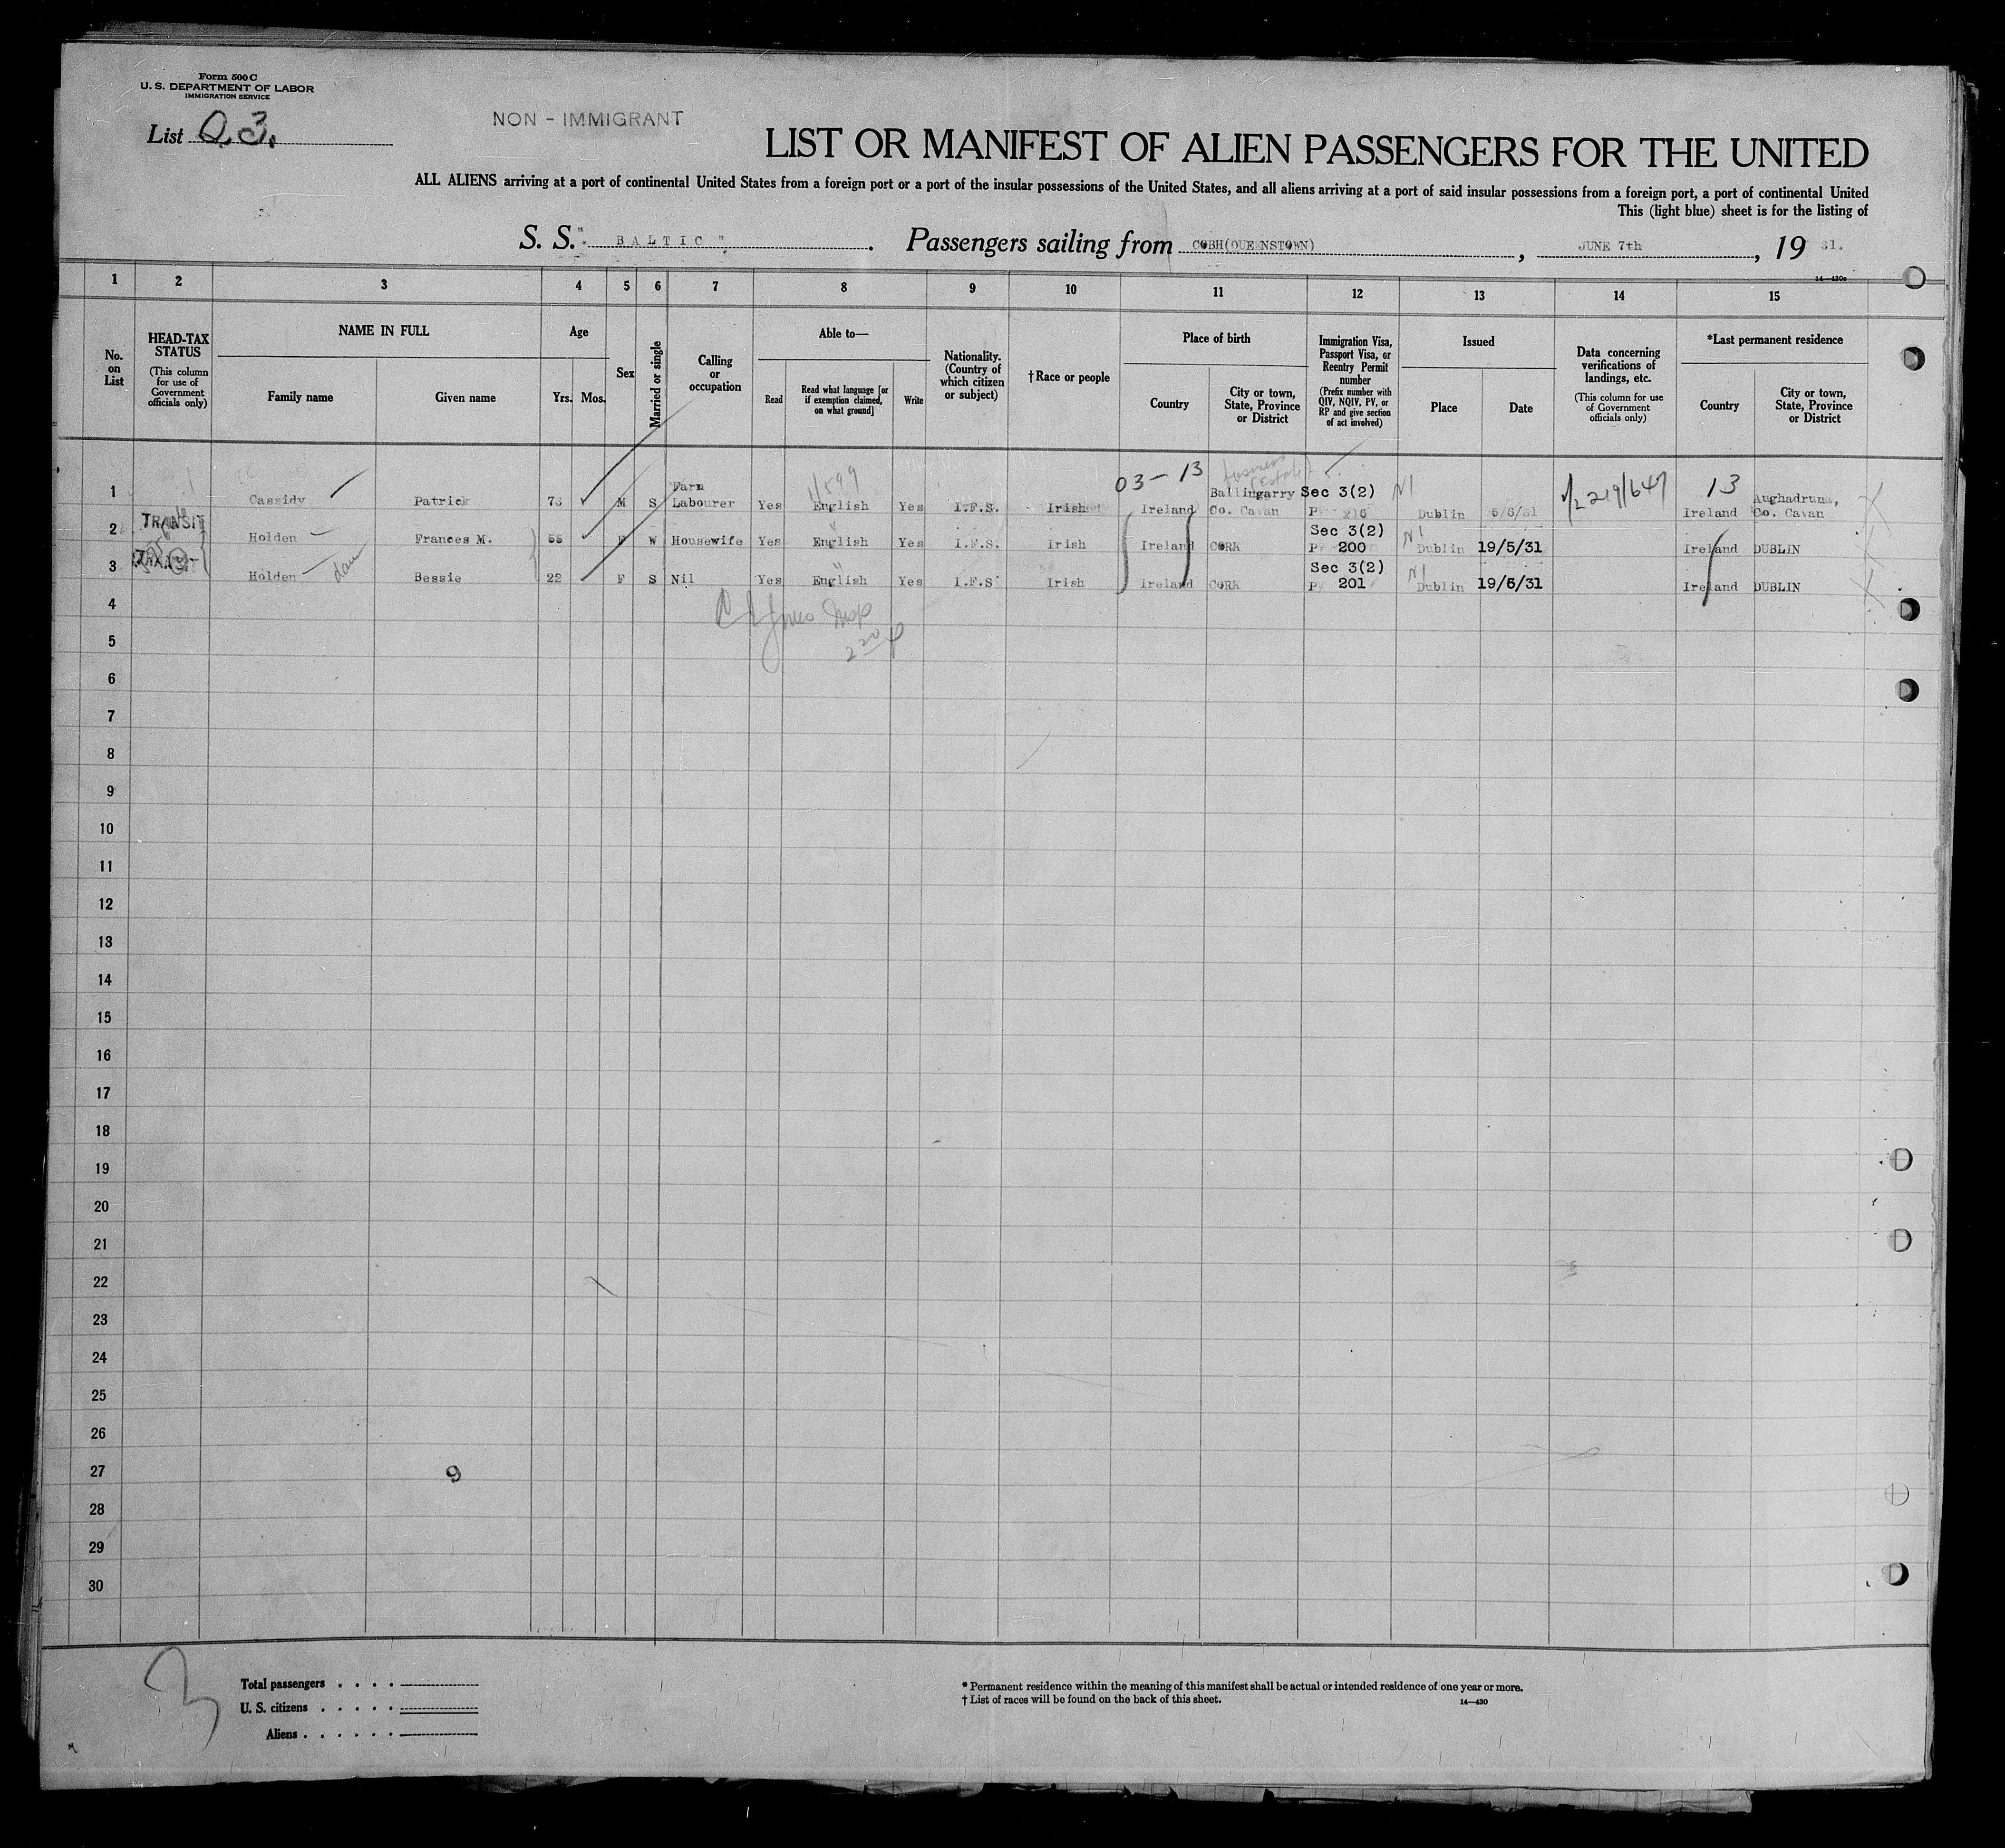 Form 500 C
U. S. DEPARTMENT OF LABOR
IMMIGRATION SERVICE
List Q.3.
NON - IMMIGRANT
LIST OR MANIFEST OF ALIEN PASSENGERS FOR THE UNITED
ALL ALIENS arriving at a port of continental United States from a foreign port or a port of the insular possessions of the United States, and all aliens arriving at a port of said insular possessions from a foreign port, a port of continental United
This (light blue) sheet is for the listing of
S. S. " BALTIC ". Passengers sailing from COBH(QUEENSTOWN), JUNE 7th, 19 31.
14—430c
1 2 3 4 5 6 7 8 9 10 11 12 13 14 15
No. on List
HEAD-TAX STATUS (This column for use of Government officials only)
NAME IN FULL
Family name Given name
Age
Yrs. Mos.
Sex
Married or single
Calling or occupation
Able to—
Read
Read what language [or if exemption claimed, on what ground]
Write
Nationality. (Country of which citizen or subject)
† Race or people
Place of birth
Country
City or town, State, Province or District
Immigration Visa, Passport Visa, or Reentry Permit number (Prefix number with QIV, NQIV, PV, or RP and give section of act involved)
Issued
Place Date
Data concerning verifications of landings, etc. (This column for use of Government officials only)
*Last permanent residence
Country
City or town, State, Province or District
03 - 13
1 Cassidy Patrick 73 M S Farm Labourer Yes English Yes I.F.S. Irish Ireland Ballingarry Co. Cavan Sec 3(2) P 216 N1 Dublin 5/6/31 13 Ireland Aughadruna, Co. Cavan
2 TRANSIT Holden Frances M. 55 F W Housewife Yes English Yes I.F.S. Irish Ireland CORK Sec 3(2) P 200 N1 Dublin 19/5/31 Ireland DUBLIN
3 TRANSIT Holden dau Bessie 22 F S Nil Yes English Yes I.F.S. Irish Ireland CORK Sec 3(2) P 201 N1 Dublin 19/5/31 Ireland DUBLIN
4
5
6
7
8
9
10
11
12
13
14
15
16
17
18
19
20
21
22
23
24
25
26
27 9
28
29
30
3
Total passengers . . . .
U. S. citizens . . . . .
Aliens . . . . . .
* Permanent residence within the meaning of this manifest shall be actual or intended residence of one year or more.
† List of races will be found on the back of this sheet.
14—430